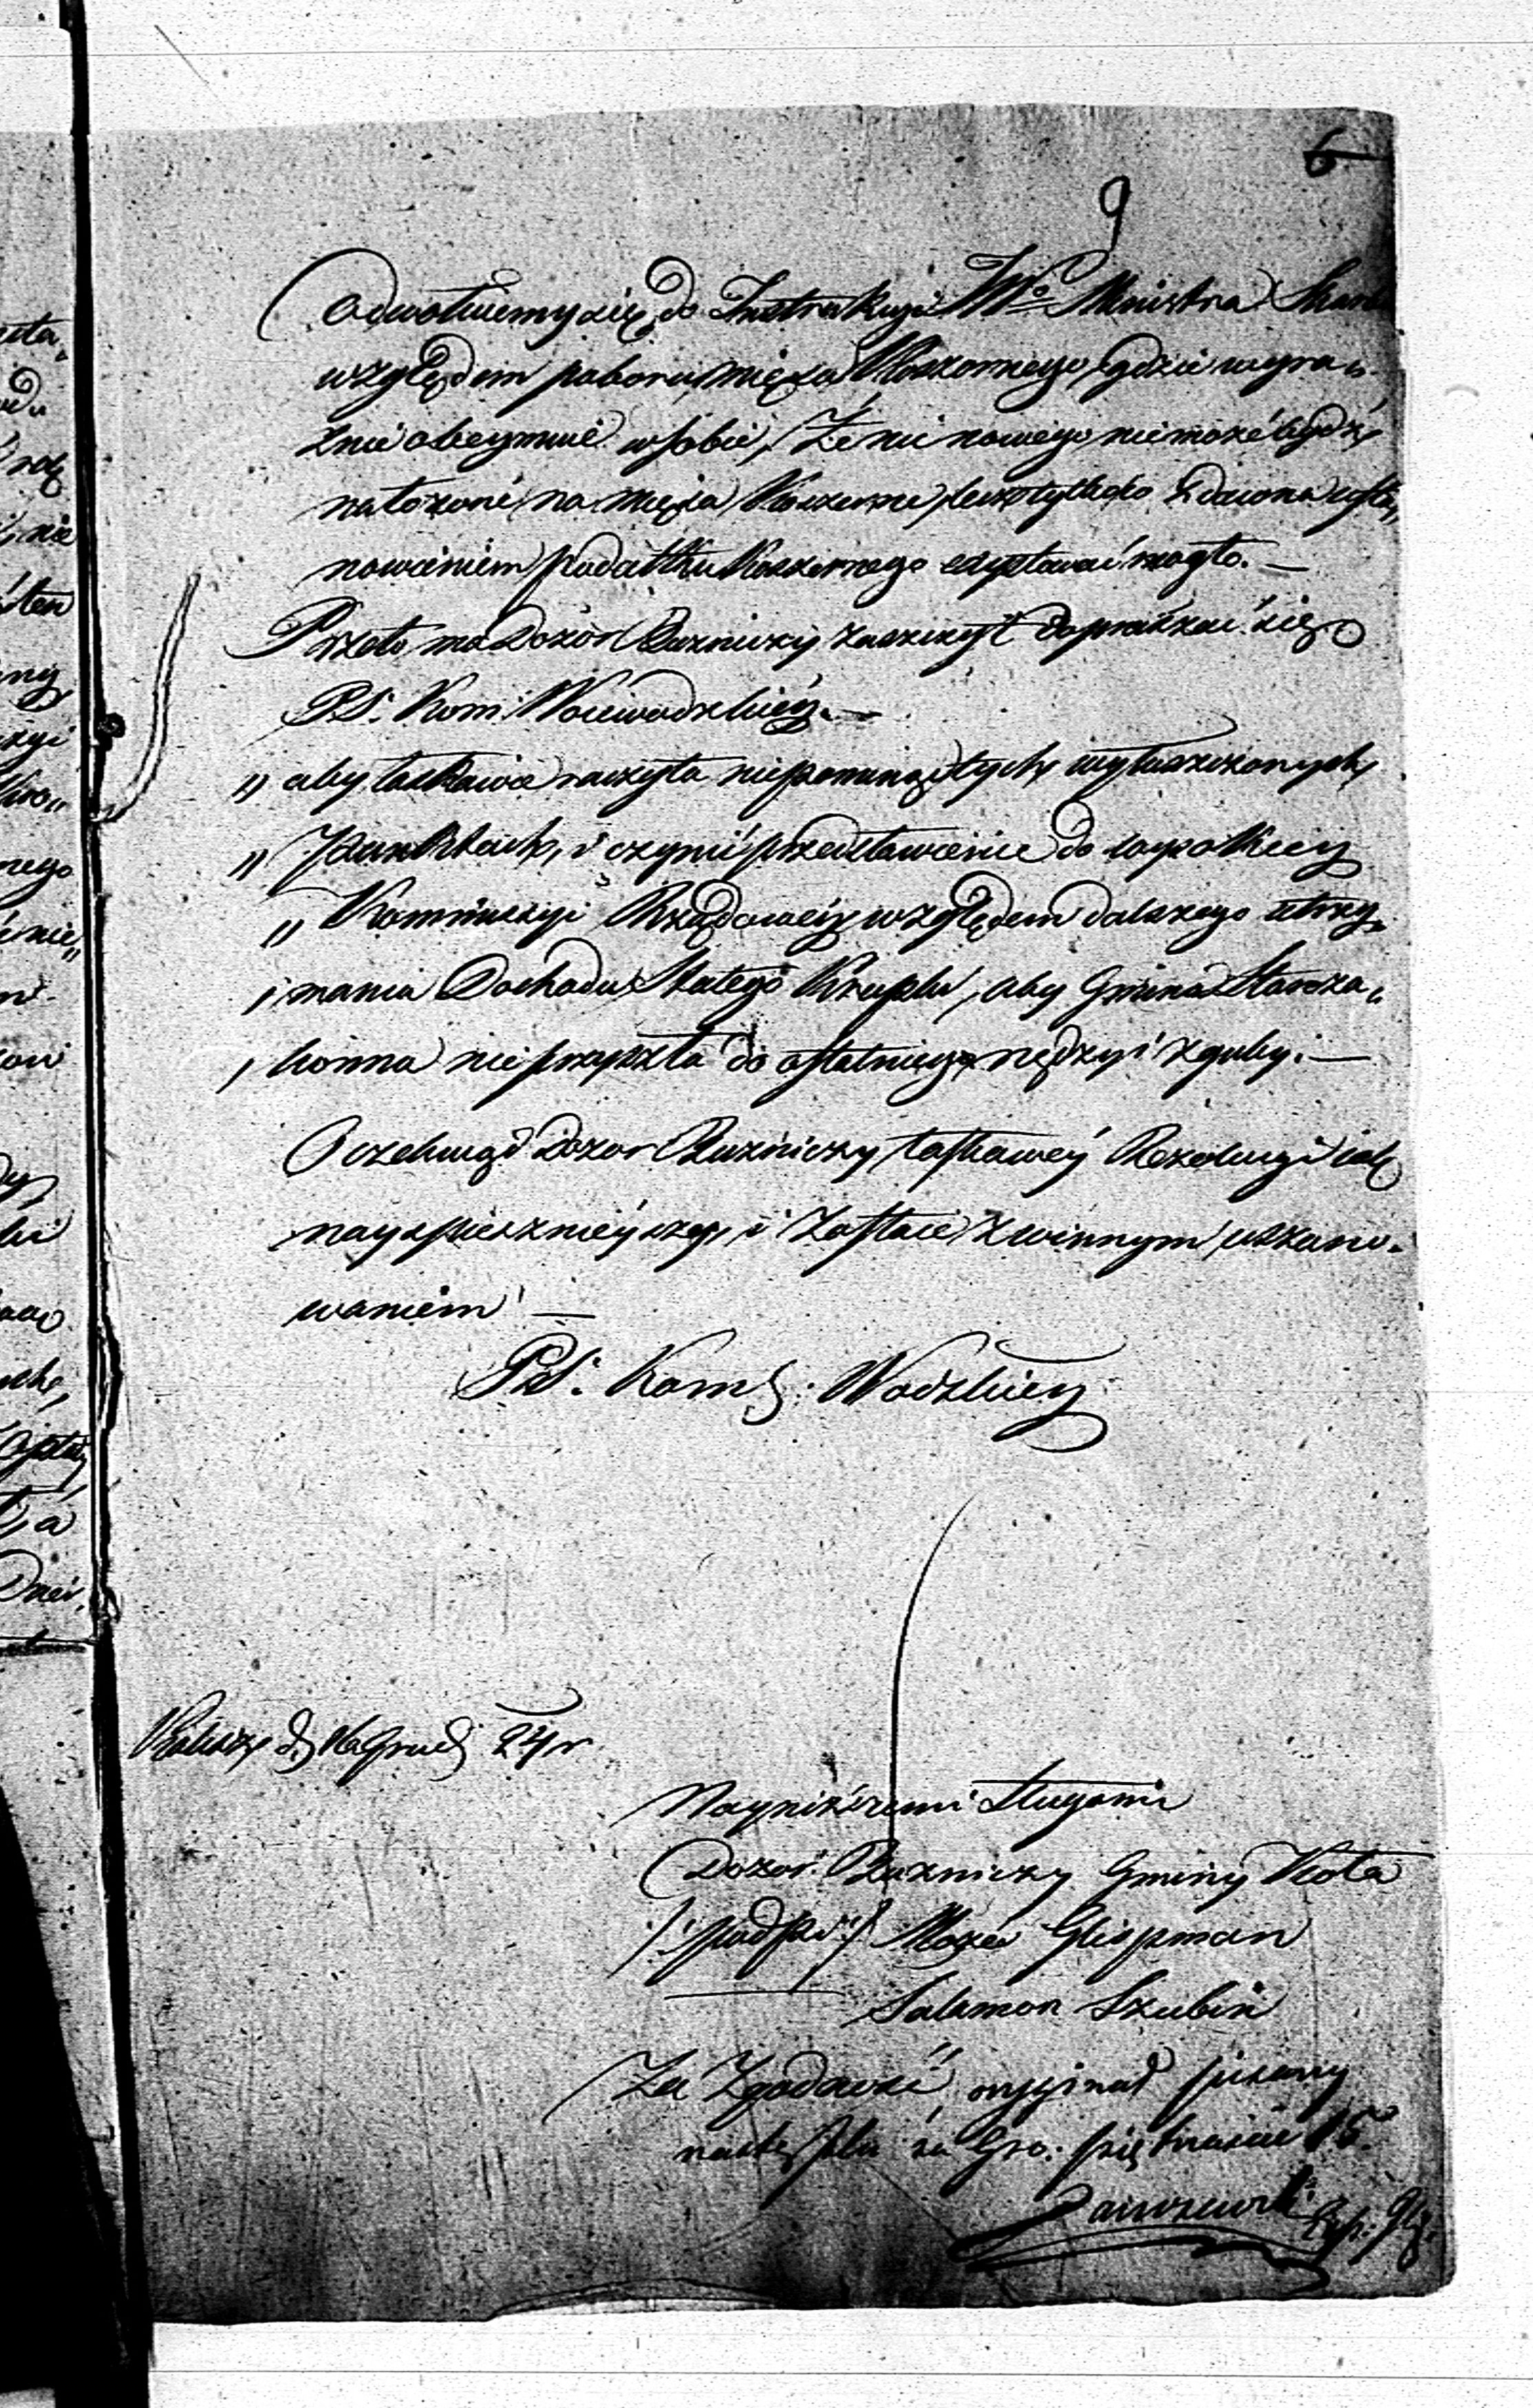 6
9
Odwołuiemy się do Instrukcyi Wgo Ministra Skar
względem poboru mięsa Koszernego, gdzie wyra„
znie obeymuie w sobie, Że nic nowego nie może bydź
nałożone, na mięsa Koszerne, lecz tylko zdawna usta„
nowieniem podatku Koszernego exystować mogło. —
Przeto ma Dozór Bużniczy zaszczyt dopraszać się
P.S. Kom: Woiewodzkiey. —
„ aby łaskawie raczyła niepomimo tych wyłuszczonych
„ Punktach, i czynić przedstawienie do wysokiey
„ Kommissyi Rządowey względem dalszego utrzy„
, mania Dochodu Stałego Krupki, aby Gmina Staroza„
, konna nie przyszła do ostatniego nędzy i zguby. —
Oczekuiąc Dozor Bużniczy łaskawey Rezolucyi iak
nayspieszneyszey, i zostaie z winnym uszano„
waniem —
P.S. Koms: Wodzkiey
Kalisz d. 16 Grud 24 r
Nayniższemi Sługami
Dozor Bużniczy Gminy Koła
/:podpis:/ Mozes Glipman
Salamon Szubin
Za Zgodność, oryginał pisany
na stęplu za Gro. piętnaście 15.